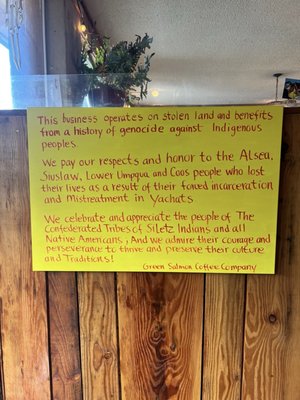 This business operates on stolen land and benefits
from a history of genocide against Indigenous
peoples.
We pay our respects and honor to the Alsea,
Siuslaw, Lower Umpqua and Coos people who lost
their lives as a result of their forced incarceration
and Mistreatment in Yachats.
We celebrate and appreciate the people of The
Confederated Tribes of Siletz Indians and all
Native Americans, And we admire their courage and
perseverance to thrive and preserve their culture
and Traditions!
Green Salmon Coffee Company